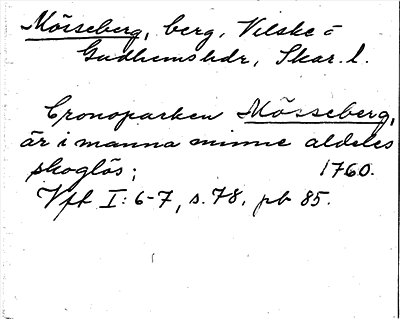 Mösseberg, berg, Vilske o
Gudhems hdr, Skar. l.
Cronoparken Mösseberg,
är i manna minne aldeles
skoglös; 1760.
Vft I: 6-7, s. 78, pb 85.